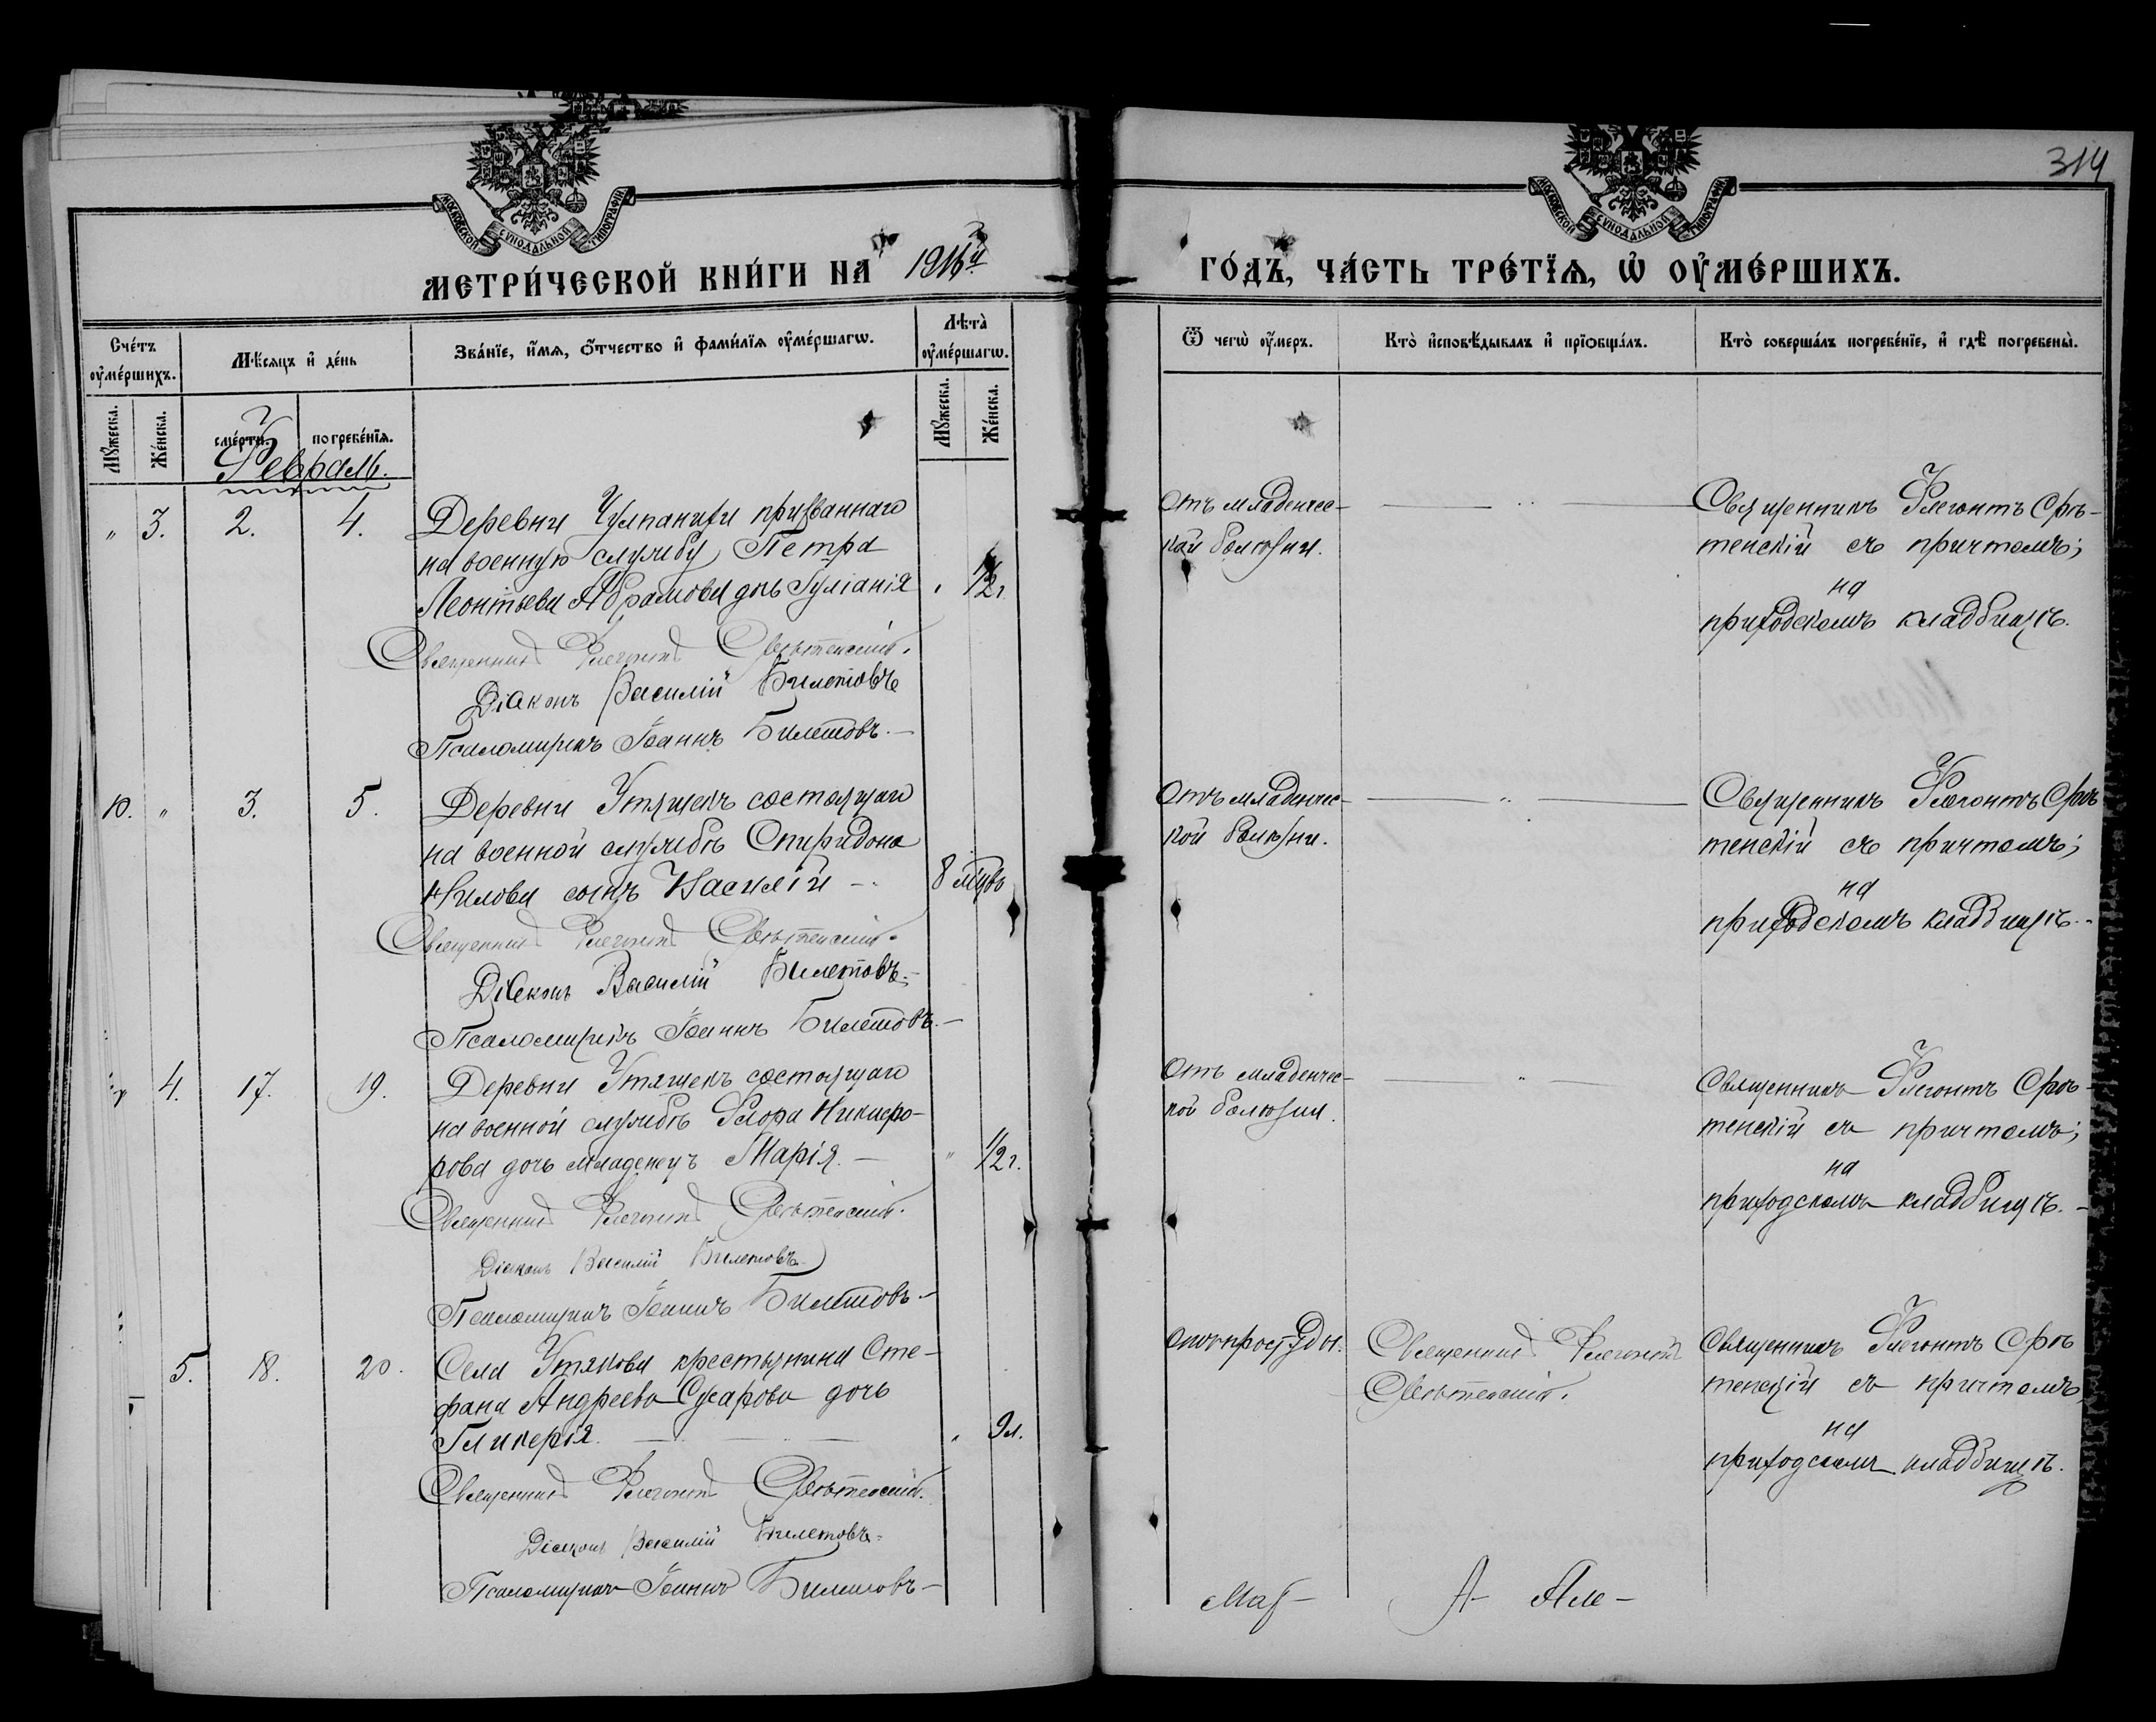 314
МОСКОВСКОЙ СУНОДАЛЬНОЙ ТИПОГРАФІИ
МОСКОВСКОЙ СУНОДАЛЬНОЙ ТИПОГРАФІИ
МЕТРИ́ЧЕСКОЙ КНИ́ГИ НА 1916й
ГО́ДЪ, ЧА́СТЬ ТРЕ́ТЇѦ, Ѡ҆ ОУ҆МЕ́РШИХЪ.
Счéтъ оу҆мéршихъ.
Мѣ́сяцъ и҆ де́нь
Зва́нїе, и҆́мѧ, ѻ҆́тчество и҆ фами́лїѧ оу҆ме́ршагѡ.
Лѣта̀ оу҆ме́ршагѡ.
Ѿ чегѡ̀ оу҆́меръ.
Кто̀ и҆сповѣ́дывалъ и҆ прїѻбща́лъ.
Кто̀ соверша́лъ погребе́нїе, и҆ гдѣ̀ погребены̀.
Мꙋ́жеска.
Же́нска.
сме́рти.
погребе́нїѧ.
Мꙋ́жеска.
Же́нска.
Февраль.
" 3. 2. 4. Деревни Чулпанихи призваннаго
на военную службу Петра
Леонтьева Абрамова дочь Іуліанія " 1/2 г.
Священникъ Флегонтъ Срѣтенскій.
Діаконъ Василій Билетовъ
Псаломщикъ Іоаннъ Билетовъ.—
Отъ младенчес-
кой болѣзни.
— " —
Священникъ Флегонтъ Срѣ-
тенскій съ причтомъ;
на
приходскомъ кладбищѣ.
10. " 3. 5. Деревни Утяшекъ состоящаго
на военной службѣ Спиридона
сынъ Василій — 8 мцвъ
Священникъ Флегонтъ Срѣтенскій.
Діаконъ Василій Билетовъ.
Псаломщикъ Іоаннъ Билетовъ.—
Отъ младенчес-
кой болѣзни.
— " —
Священникъ Флегонтъ Срѣ
тенскій съ причтомъ;
на
приходскомъ кладбищѣ.
" 4. 17. 19. Деревни Утяшекъ состоящаго
на военной службѣ Флора Никифо-
рова дочь младенецъ Марія. — " 1/2 г.
Священникъ Флегонтъ Срѣтенскій.
Діаконъ Василій Билетовъ
Псаломщикъ Іоаннъ Билетовъ.—
Отъ младенчес-
кой болѣзни.
— " —
Священникъ Флегонтъ Срѣ-
тенскій съ причтомъ;
на
приходскомъ кладбищѣ.
5. 18. 20. Села Утякова крестьянина Сте-
фана Андреева дочь
Гликерія. — " 9 л.
Священникъ Флегонтъ Срѣтенскій.
Діаконъ Василій Билетовъ.
Псаломщикъ Іоаннъ Билетовъ—
простуды.
Священникъ Флегонтъ
Срѣтенскій.
Священникъ Флегонтъ Срѣ
тенскій съ причтомъ
на
приходскомъ кладбищѣ.
А- Але-